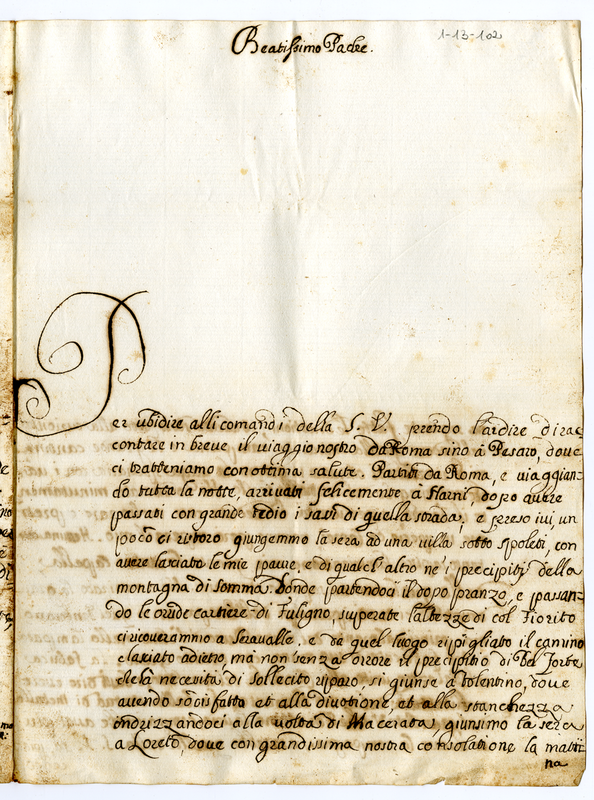 1-13-102
Beatissimo Padre.
Per ubidire alli comandi della S. V. prendo l'ardire di rac
contare in breve il viaggio nostro da Roma sino à Pesaro, dove
ci trabteniamo con ottima salute. Partiti da Roma, e viaggian=
do tutta la notte, arrivati felicemente a Narni, dopo avere
passati con grande tedio i sassi di quella strada, e preso ivi un
poco ci ristoro giungemmo la sera ad una villa sotto Spoleti, con
avere lasciato le mie paure, e di qualch'altro ne' i precipitij della
montagna di Somma. Donde partendoci il dopo pranzo, e passan=
do le orride cartiere di Fuligno, superate l'altezze di col Fiorito
ci ricoverammo a Seravalle, e da quel luogo ripigliato il camino
e lasciato adietro, mà non senza orrore il precipitio di Bel forte
e la necesità di sollecito riparo, si giunse à Tolentino, dove
avendo sodisfatto et alla divotione, et alla stanchezza
indrizzandoci alla volta di Macerata, giunsimo la sera
a Loreto, dove con grandissima nostra consolatione la matti
na